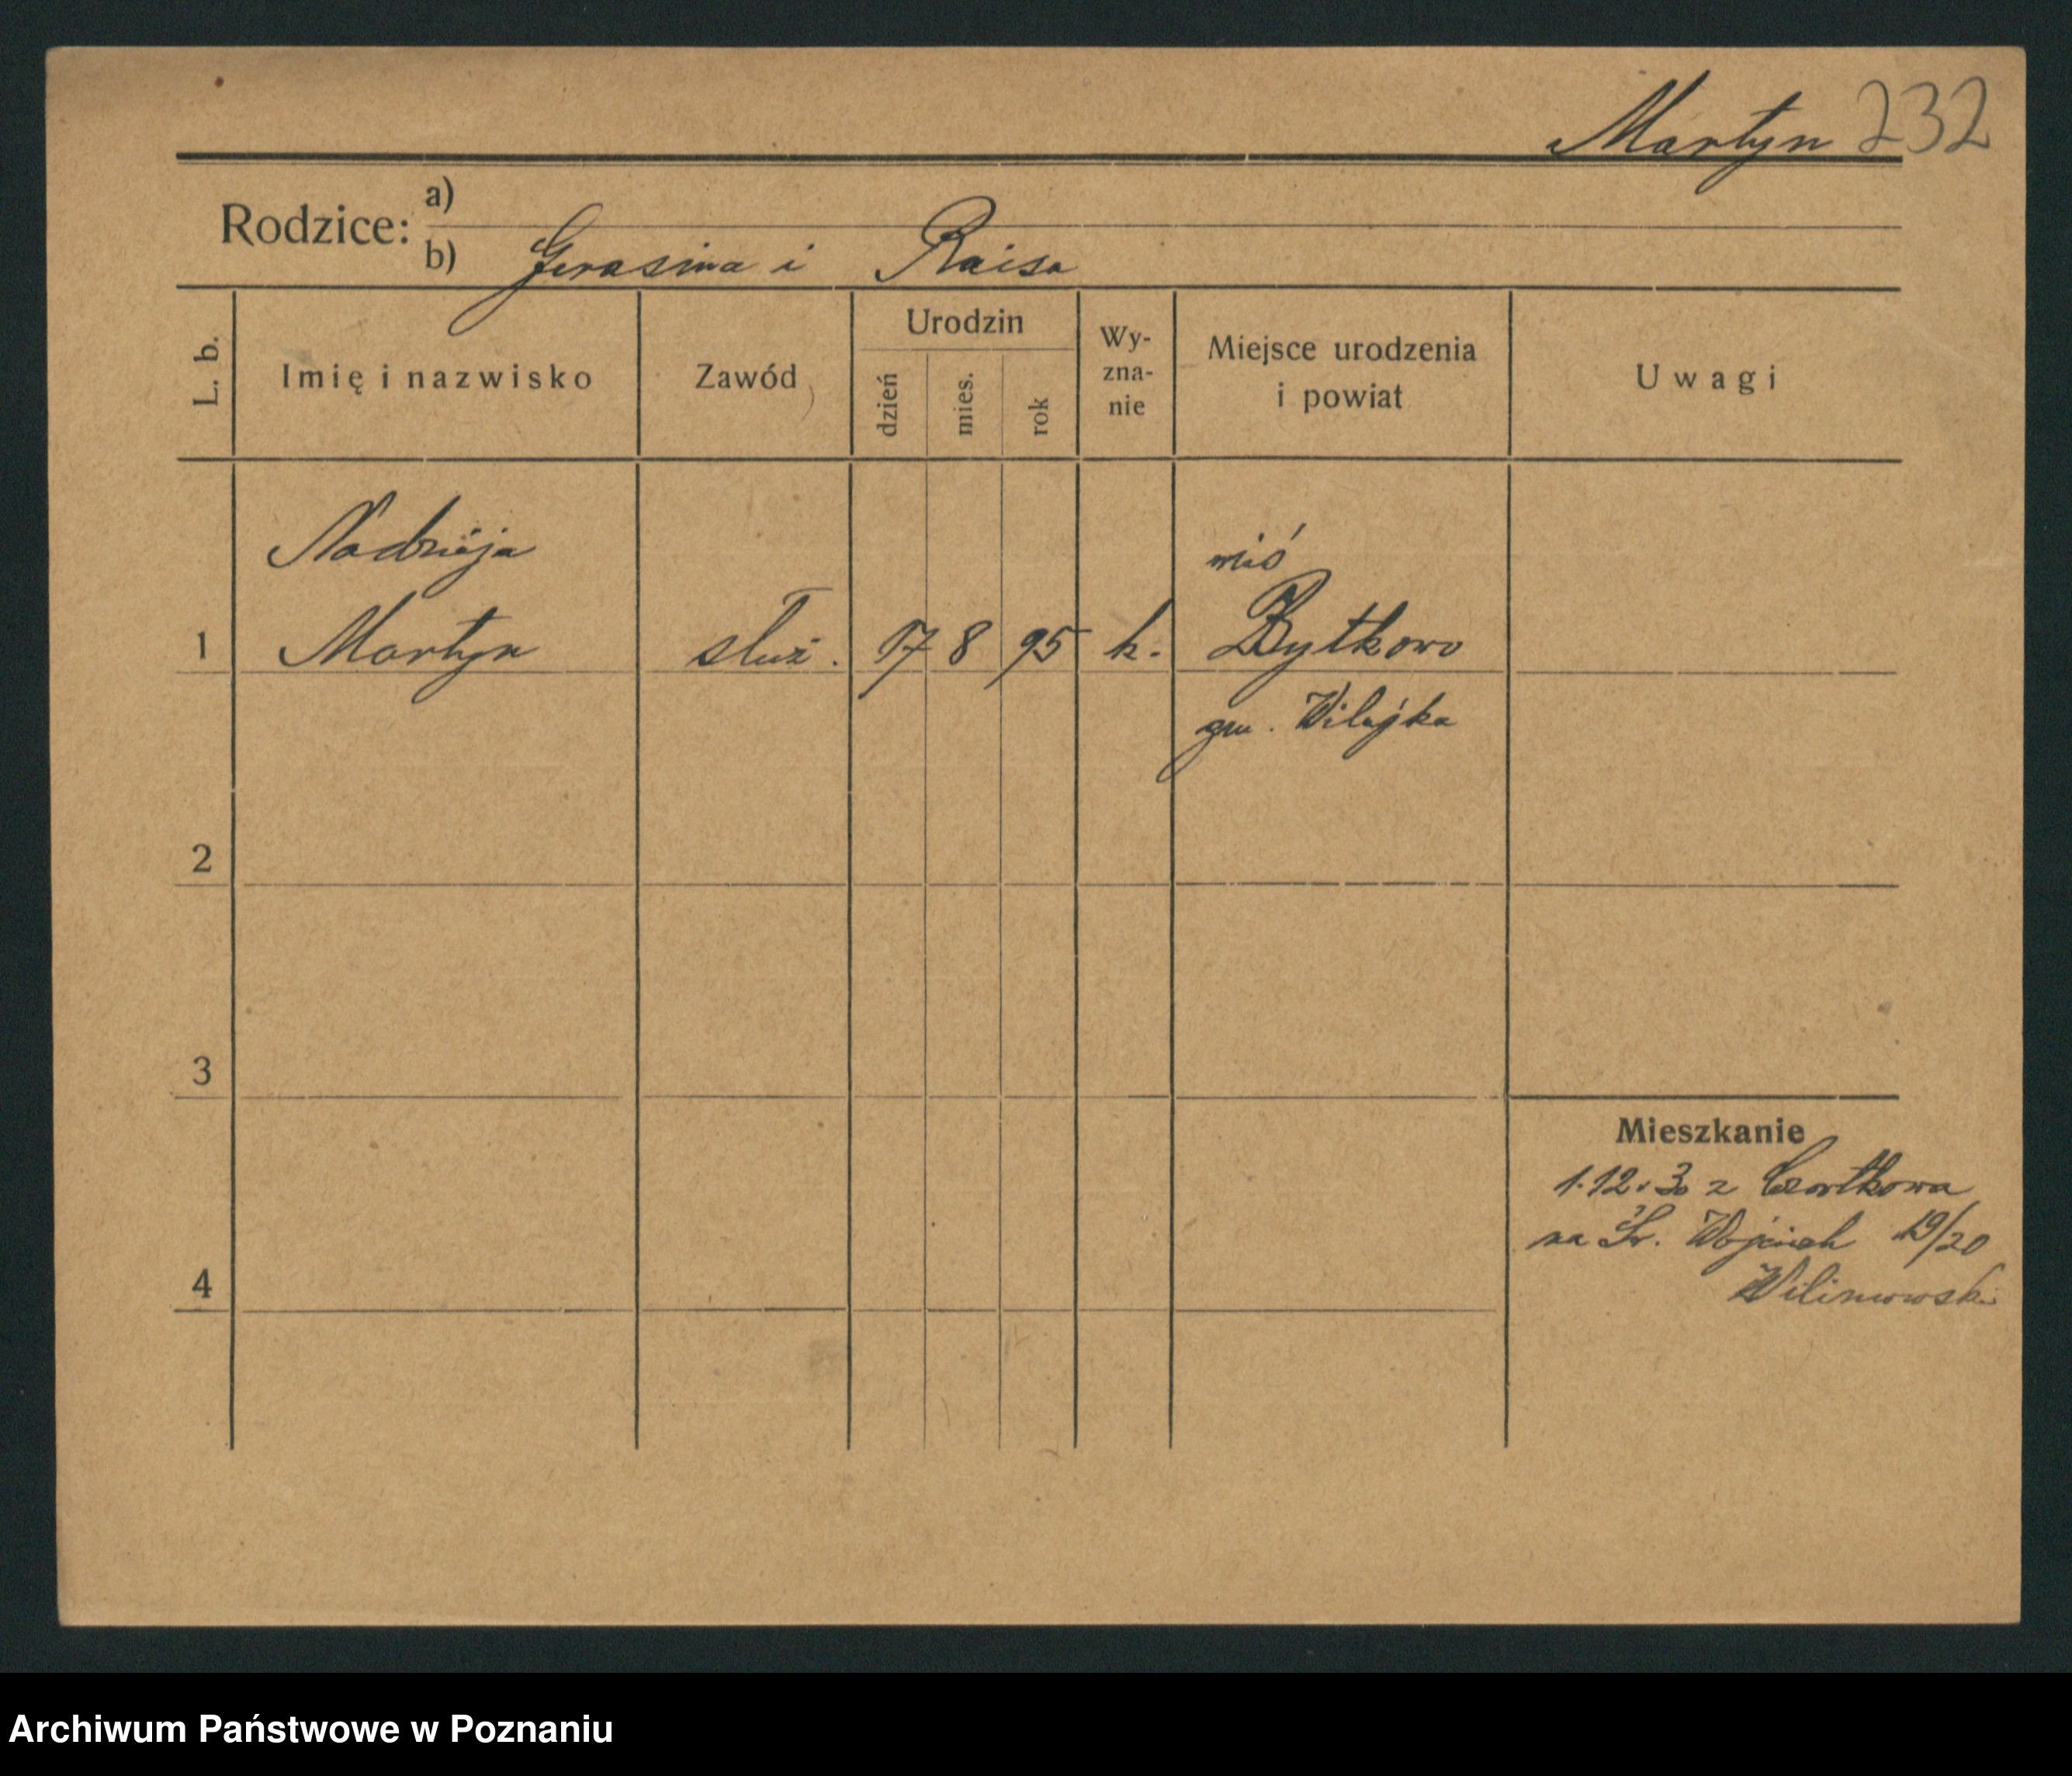 Martyn 232
Rodzice:
a)
b) Gerasima i Raisa
L. b.
Imię i nazwisko
Zawód
Urodzin
dzień
mies.
rok
Wy-
zna-
nie
Miejsce urodzenia
i powiat
Uwagi
Nadzieja
wieś
1 Martyn służ. 17 8 95 k. Bytkowo
gm. Wilejka
2
3
4
Mieszkanie
1.12.30 z Czortkowa
na Św. Wojciech 19/20
Archiwum Państwowe w Poznaniu